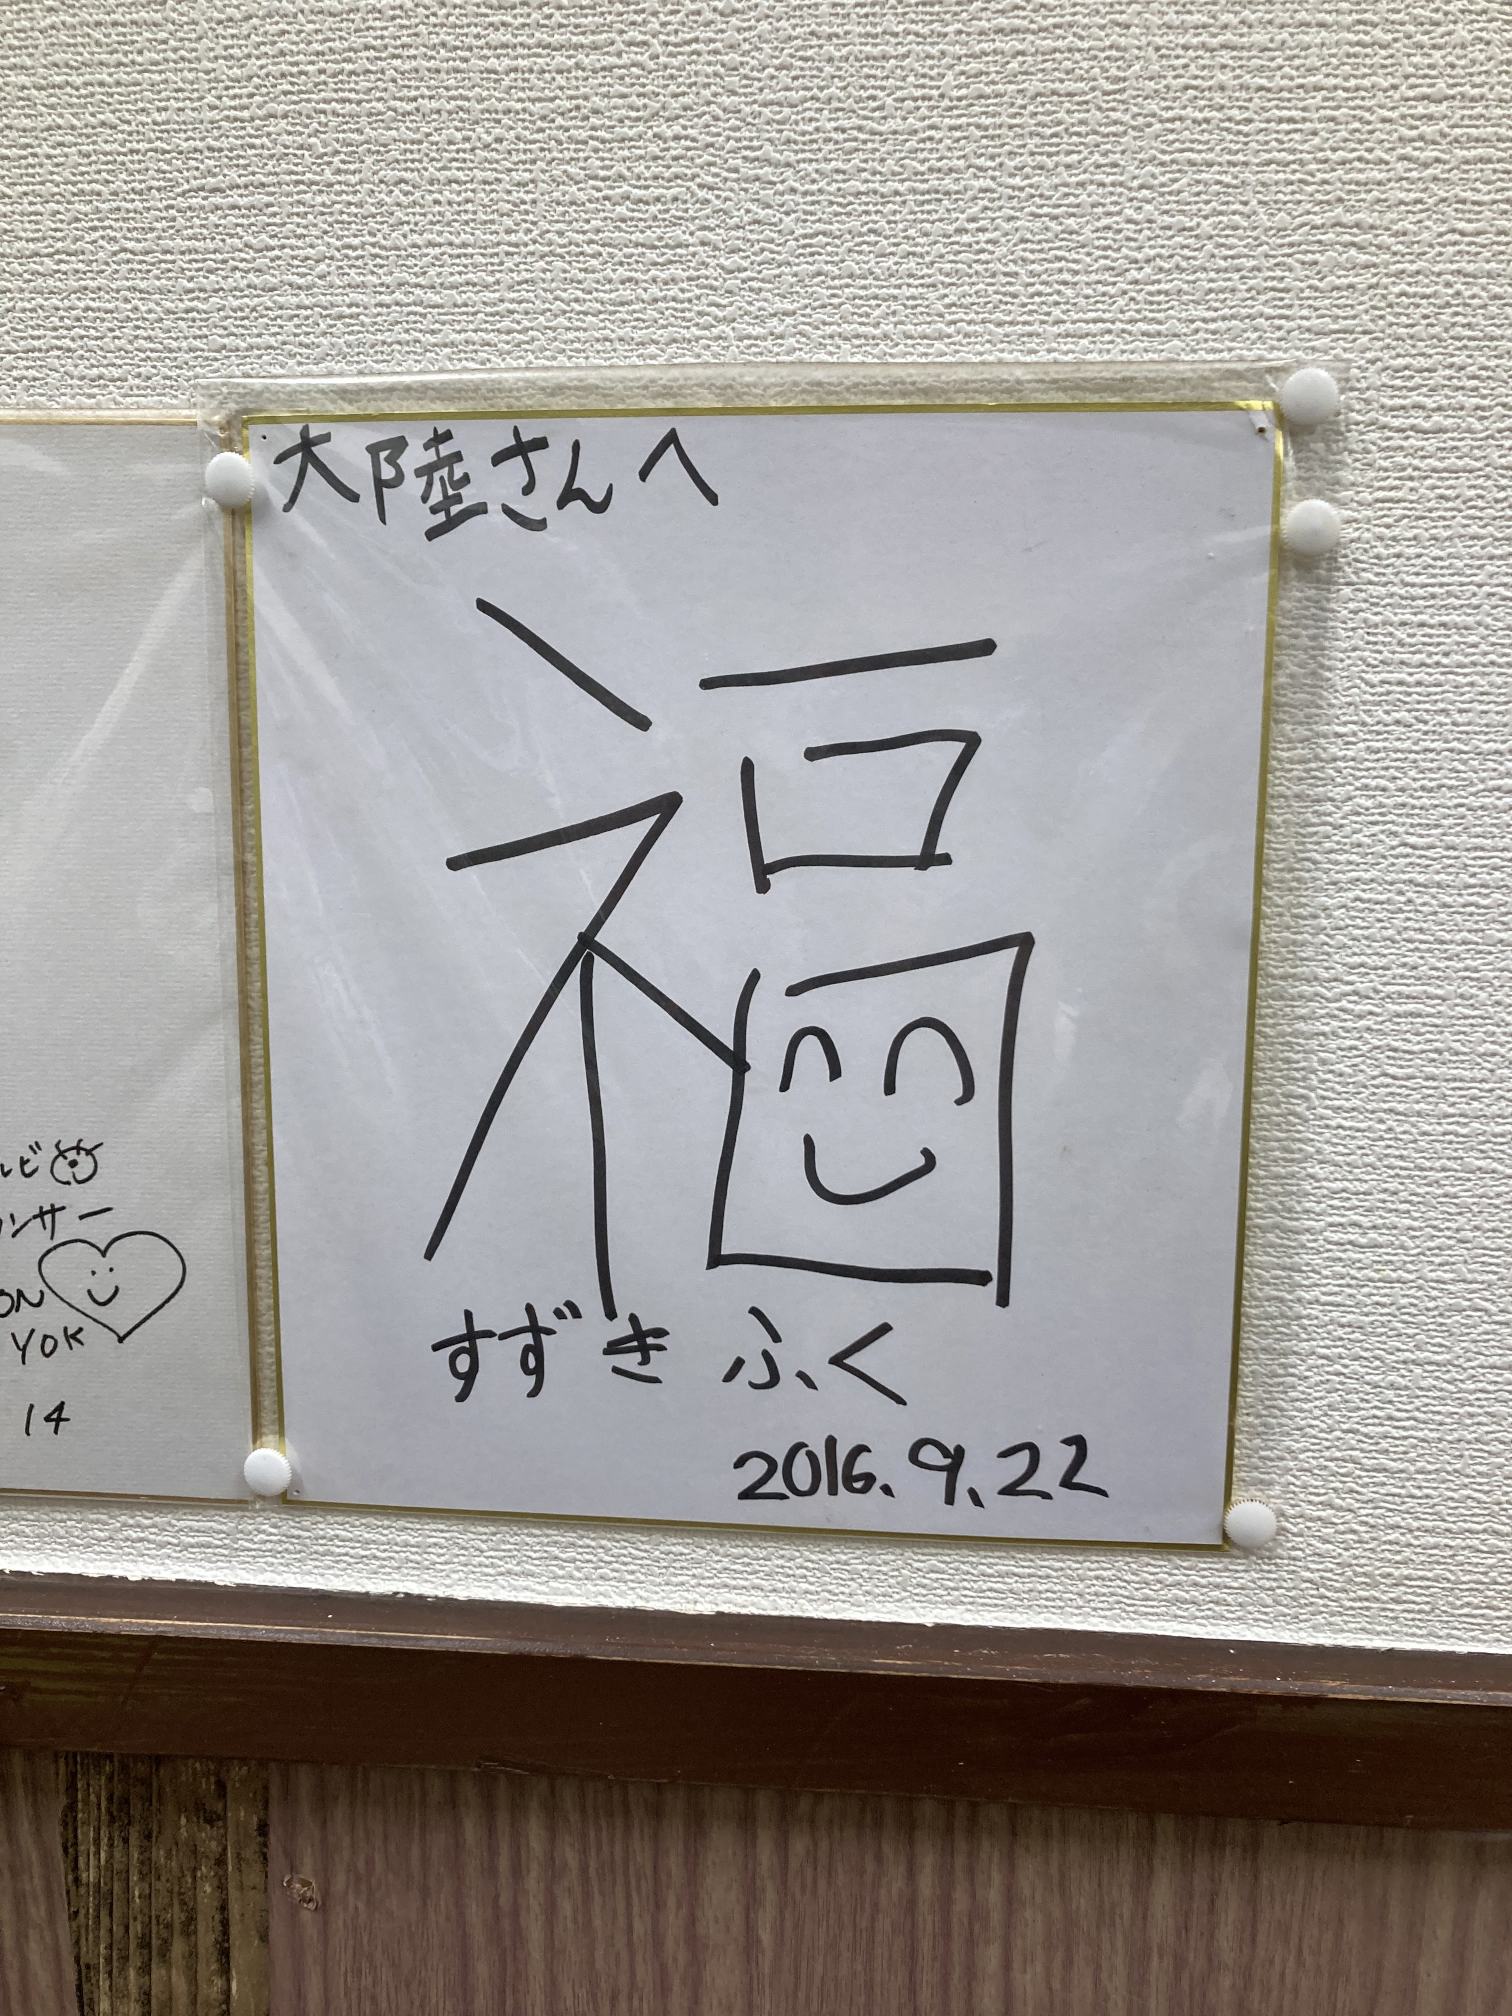 大陸さんへ
福
すずき ふく
2016.9.22
ルビ
ンサー
ON
YOK
14